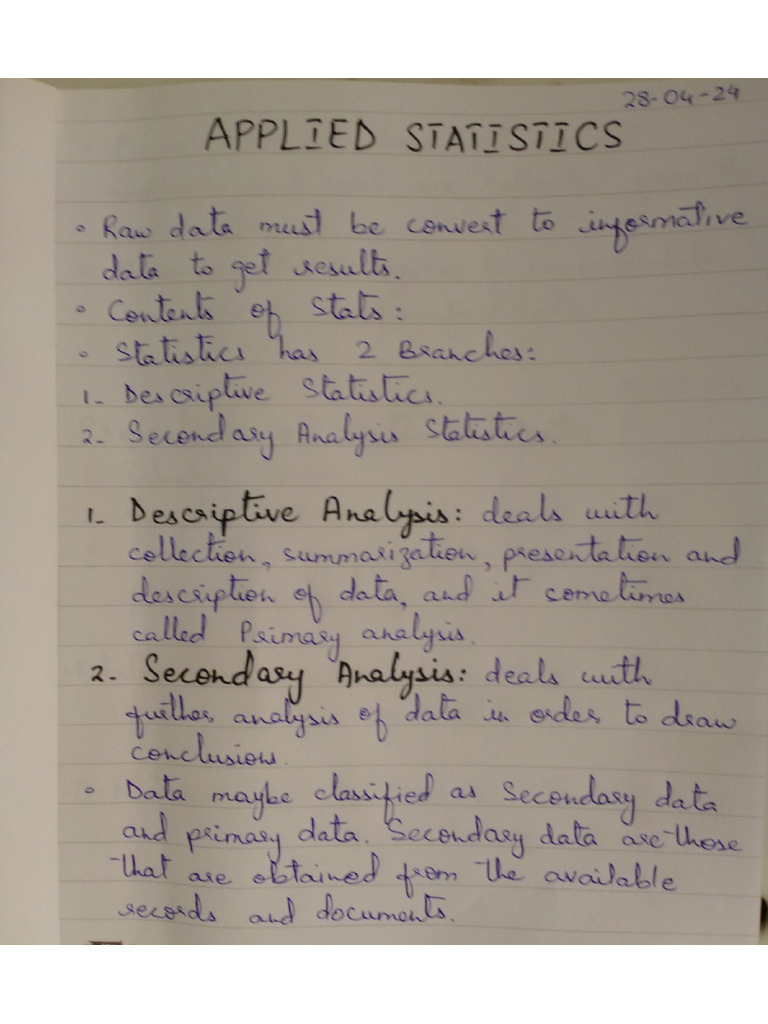 28-04-24
APPLIED STATISTICS
• Raw data must be convert to informative
data to get results.
• Contents of Stats:
• Statistics has 2 Branches:
1- Descriptive Statistics.
2- Secondary Analysis Statistics.
1- Descriptive Analysis: deals with
collection, summarization, presentation and
description of data, and it sometimes
called Primary analysis.
2- Secondary Analysis: deals with
further analysis of data in order to draw
conclusions.
• Data maybe classified as Secondary data
and primary data. Secondary data are those
that are obtained from the available
records and documents.